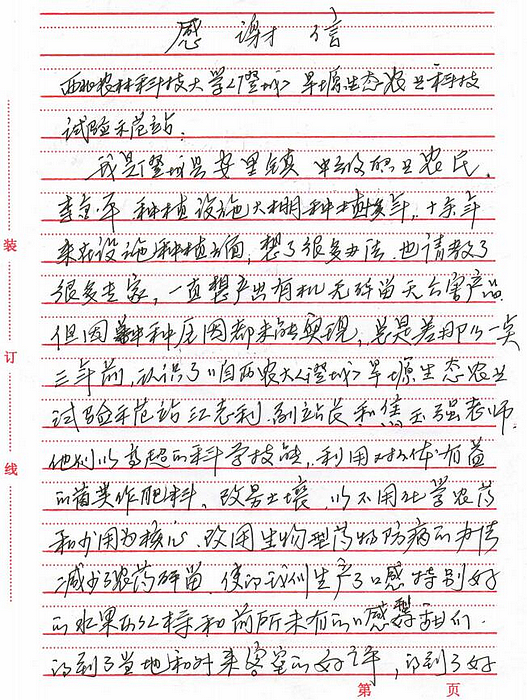 感谢信
西北农林科技大学<澄城>旱塬生态农业科技
试验示范站.
我是澄城县安里镇 中级职业农民,
种植设施大棚种植 年,十余年
来在设施种植方面,想了很多办法,也请教了
很多专家,一直想产出有机无残留无公害产品
但因种种原因都未能实现,总是差那么一点
三年前,认识了咱西农大<澄城>旱塬生态农业
试验示范站江志利副站长和焦玉强老师.
他们以高超的科学技能,利用对人体有益
的菌类作肥料,改良土壤,以不用化学农药
和少用为核心,改用生物型药物防病的办法
减少了农药残留,使的我们生产了口感特别好
的水果 和前所未有的口感
得到了当地和外来客商的好评,得到了好
装
订
线
第 页